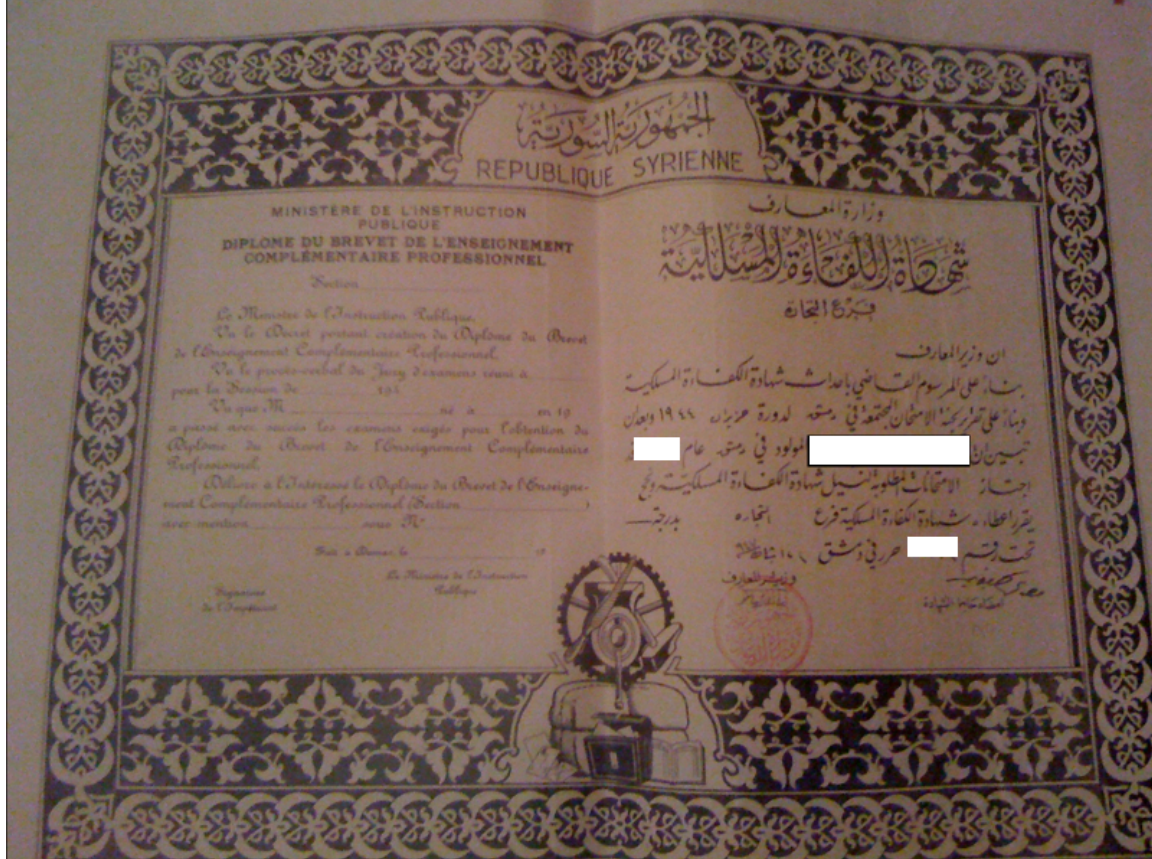 الجمهورية السورية
REPUBLIQUE SYRIENNE
MINISTÈRE DE L'INSTRUCTION
PUBLIQUE
DIPLOME DU BREVET DE L'ENSEIGNEMENT
COMPLÉMENTAIRE PROFESSIONNEL
Section
Le Ministre de l'Instruction Publique,
Vu le Décret portant création du Diplôme du Brevet
de l'Enseignement Complémentaire Professionnel,
Vu le procès-verbal du Jury d'examens réuni à
pour la Session de 194
Vu que M né à en 19
a passé avec succès les examens exigés pour l'obtention du
Diplôme du Brevet de l'Enseignement Complémentaire
Professionnel.
Délivre à l'Intéressé le Diplôme du Brevet de l'Enseigne-
ment Complémentaire Professionnel (Section )
avec mention sous N°
Fait à Damas, le 19
Le Ministre de l'Instruction
Publique
Signature
de l'Impétrant
وزارة المعارف
شهادة الكفاءة المسلكية
فرع التجارة
ان وزير المعارف
بناء على المرسوم القاضي باحداث شهادة الكفاءة المسلكية
وبناء على تقرير لجنة الامتحان المجتمعة في دمشق لدورة حزيران ١٩٤٤ وبعد ان
تبين ان مولود في دمشق عام
اجتاز الامتحانات المطلوبة لنيل شهادة الكفاءة المسلكية ونجح
يقرر اعطاءه شهادة الكفاءة المسلكية فرع التجاره بدرجة
تحت رقم حرر في دمشق
وزير المعارف
امضاء حامل الشهادة